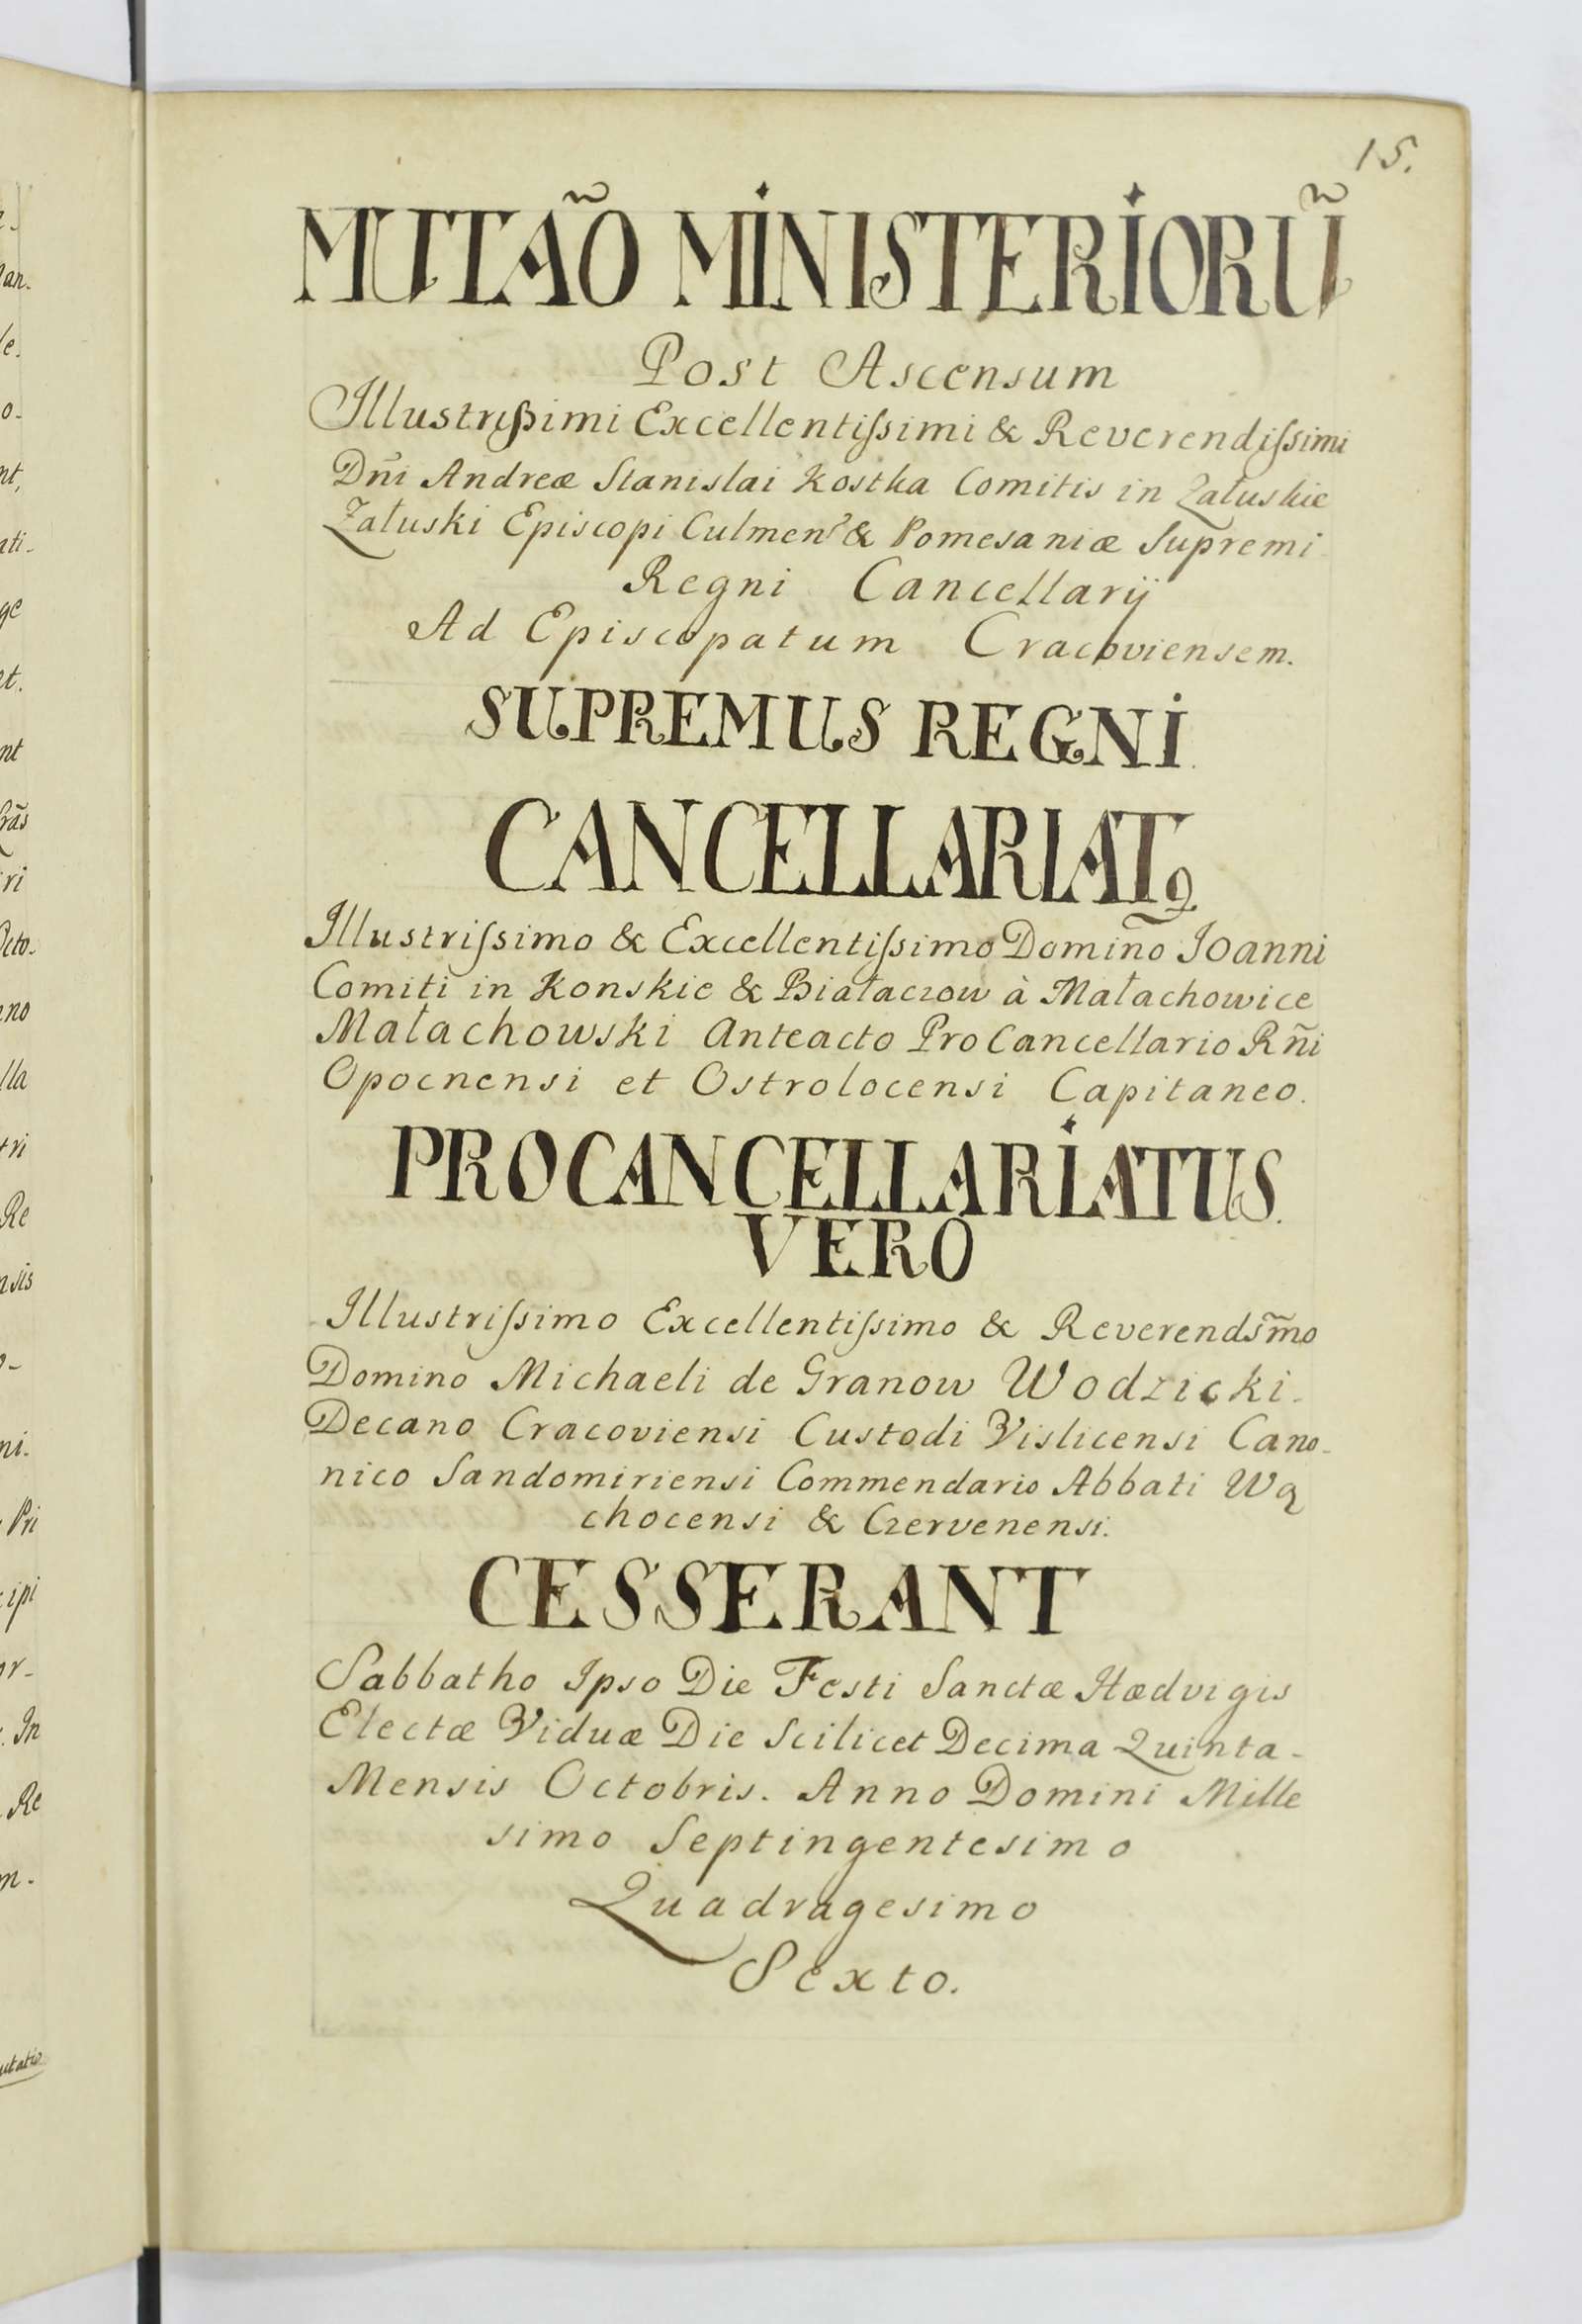 15.
MUTAÕ MINISTERIORŨ
Post Ascensum
Illustrißimi Excellentiſsimi & Reverendiſsimi
Dñi Andreæ Stanislai Kostka Comitis in Załuskie
Załuski Episcopi Culmens & Pomesaniæ Supremi
Regni Cancellarij
Ad Episcopatum Cracoviensem.
SUPREMUS REGNI
CANCELLARIATꝯ
Illustriſsimo & Excellentiſsimo Domiño Joanni
Comiti in Konskie & Białaczow à Małachowice
Małachowski Anteacto ProCancellario Rñi
Opocnensi et Ostrolocensi Capitaneo.
PROCANCELLARIATUS.
VERO
Illustriſsimo Excellentiſsimo & Reverends̃mo
Domino Michaeli de Granow Wodzicki.
Decano Cracoviensi Custodi Vislicensi Cano-
nico Sandomiriensi Commendario Abbati Wą
chocensi & Czervenensi.
CESSERANT
Sabbatho Ipso Die Festi Sanctæ Hædvigis
Electæ Viduæ Die Scilicet Decima Quinta-
Mensis Octobris. Anno Domini Mille
simo Septingentesimo
Quadragesimo
Sexto.